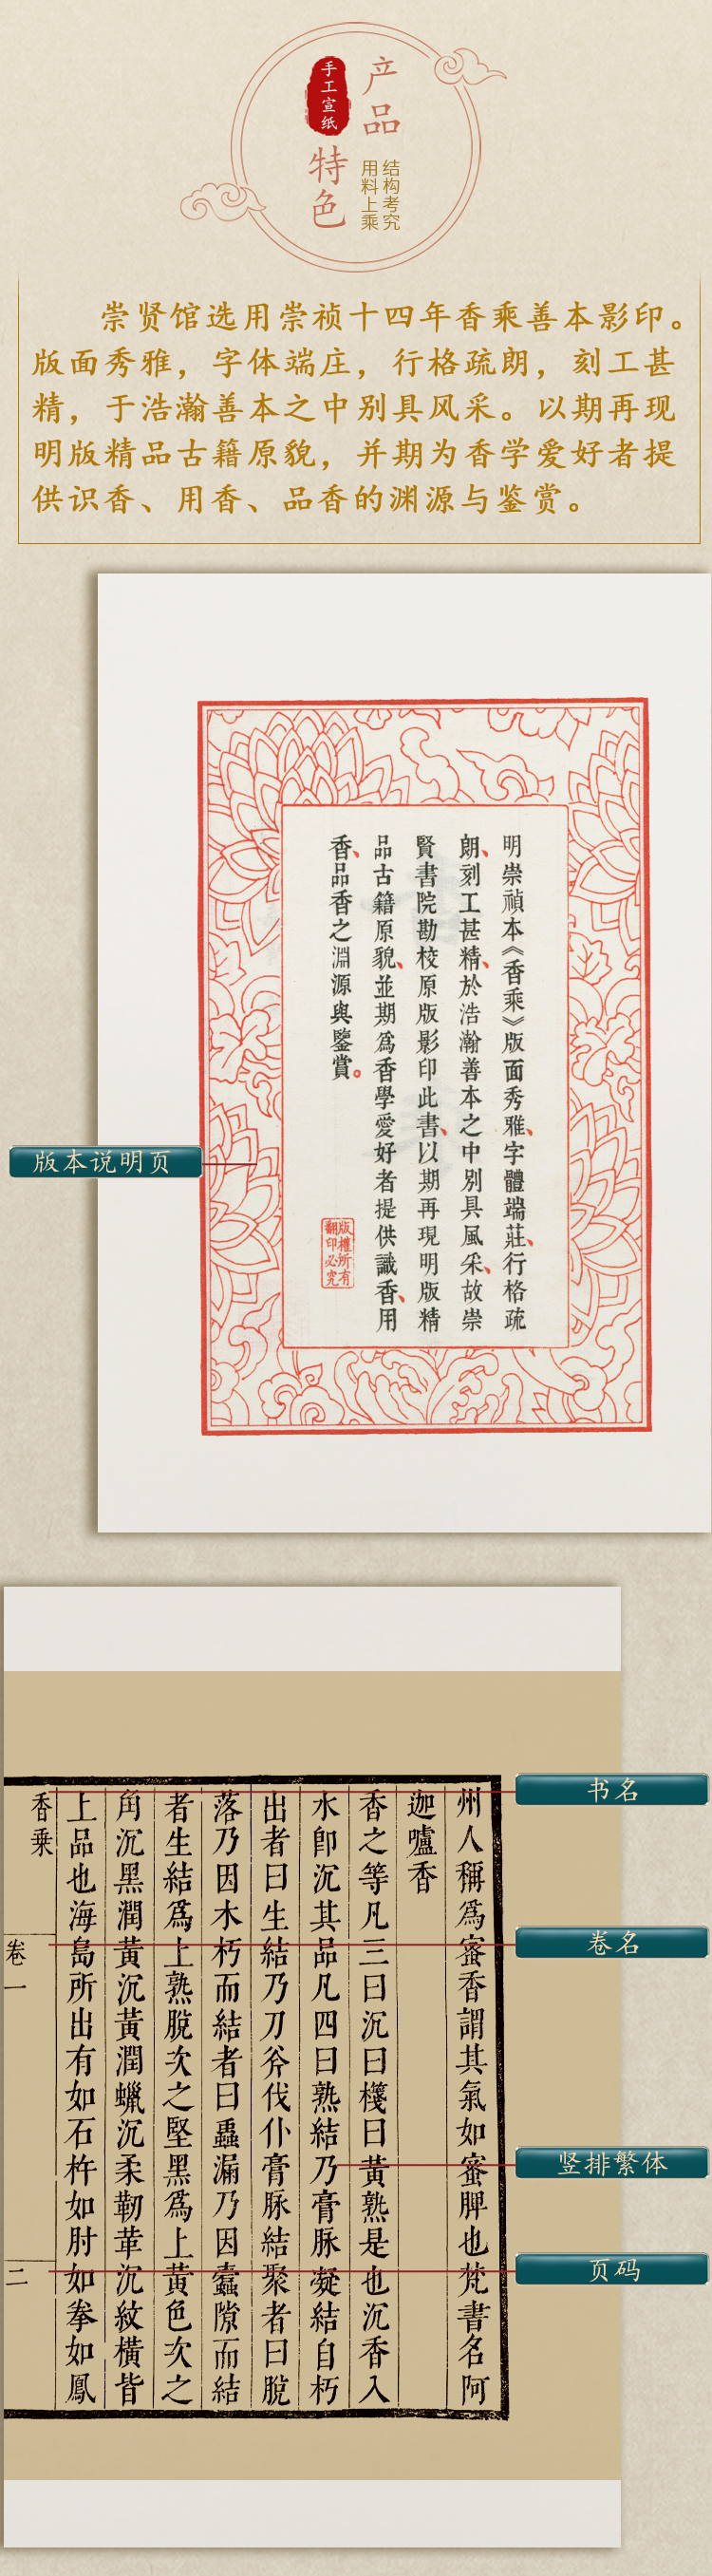 产品
特色
手工宣纸
结构考究
用料上乘
崇贤馆选用崇祯十四年香乘善本影印。
版面秀雅，字体端庄，行格疏朗，刻工甚
精，于浩瀚善本之中别具风采。以期再现
明版精品古籍原貌，并期为香学爱好者提
供识香、用香、品香的渊源与鉴赏。
明崇禎本《香乘》版面秀雅、字體端莊、行格疏
朗、刻工甚精、於浩瀚善本之中别具風采、故崇
賢書院勘校原版影印此書、以期再現明版精
品古籍原貌、並期為香學愛好者提供識香、用
香、品香之淵源與鑒賞。
版權所有
翻印必究
版本说明页
书名
卷名
竖排繁体
页码
州人稱爲蜜香謂其氣如蜜脾也梵書名阿
迦嚧香
香之等凡三曰沉曰棧曰黃熟是也沉香入
水卽沉其品凡四曰熟結乃膏脉凝結自朽
出者曰生結乃刀斧伐仆膏脉結聚者曰脫
落乃因木朽而結者曰蟲漏乃因蠹隙而結
者生結爲上熟脫次之堅黑爲上黃色次之
角沉黑潤黃沉黃潤蠟沉柔韌革沉紋橫皆
上品也海島所出有如石杵如肘如拳如鳳
香乘
卷一
二